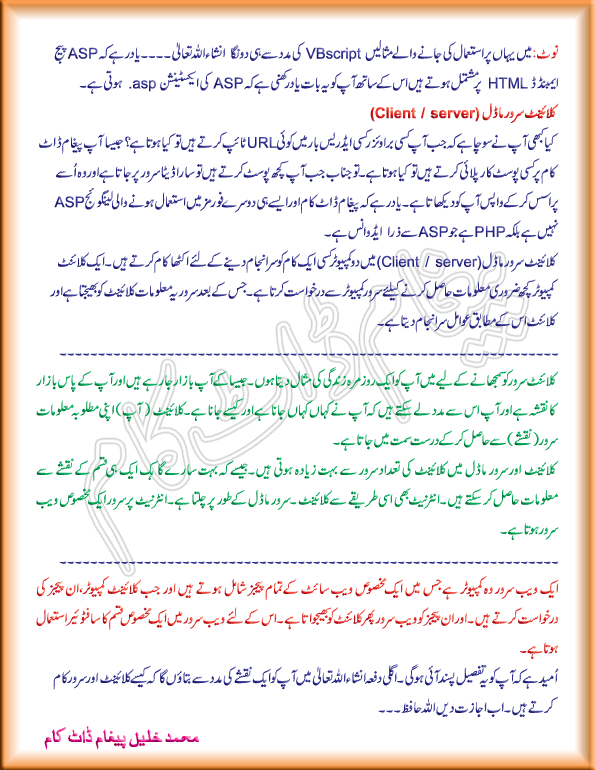 نوٹ: میں یہاں پر استعمال کی جانے والے مثالیں VBscript کی مدد سے ہی دونگا انشاء اللہ تعالیٰ ۔۔۔۔ یاد رہے کہ ASP پیج
ایمبنڈڈ HTML پر مشتمل ہوتے ہیں اس کے ساتھ آپ کو یہ بات یاد رکھنی ہے کہ ASP کی ایکسٹینشن asp. ہوتی ہے۔
کلائینٹ سرور ماڈل (Client / server)
کیا کبھی آپ نے سوچا ہے کہ جب آپ کسی براؤزر کسی ایڈریس بار میں کوئی URL ٹائپ کرتے ہیں تو کیا ہوتا ہے؟ جیسا آپ پیغام ڈاٹ
کام پر کسی پوسٹ کا رپلائی کرتے ہیں تو کیا ہوتا ہے۔ تو جناب جب آپ کچھ پوسٹ کرتے ہیں تو سارا ڈیٹا سرور پر جاتا ہے اور وہ اُسے
پراسس کر کے واپس آپ کو دیکھاتا ہے۔ یاد رہے کہ پیغام ڈاٹ کام اور ایسے ہی دوسرے فورمز میں استعمال ہونے والی لینگوئج ASP
نہیں ہے بلکہ PHP ہے جو ASP سے ذرا ایڈوانس ہے۔
کلائینٹ سرور ماڈل (Client / server) میں دو کمپیوٹر کسی ایک کام کو سرانجام دینے کے لئے اکٹھا کام کرتے ہیں۔ ایک کلائنٹ
کمپیوٹر کچھ ضروری معلومات حاصل کرنے کیلئے سرور کمپیوٹر سے درخواست کرتا ہے۔ جس کے بعد سرور یہ معلومات کلائینٹ کو بھیجتا ہے اور
کلائنٹ اس کے مطابق عوامل سرانجام دیتا ہے۔
کلائنٹ سرور کو سمجھانے کے لیے میں آپ کو ایک روزمرہ زندگی کی مثال دیتا ہوں۔ جیسا کے آپ بازار جا رہے ہیں اور آپ کے پاس بازار
کا نقشہ ہے اور آپ اس سے مدد لے سکتے ہیں کہ آپ نے کہاں کہاں جانا ہے اور کیسے جانا ہے۔ کلائینٹ (آپ) اپنی مطلوبہ معلومات
سرور (نقشے) سے حاصل کر کے درست سمت میں جاتا ہے۔
کلائینٹ اور سرور ماڈل میں کلائینٹ کی تعداد سرور سے بہت زیادہ ہوتی ہیں۔ جیسے کہ بہت سارے گاہک ایک ہی قسم کے نقشے سے
معلومات حاصل کر سکتے ہیں۔ انٹرنیٹ بھی اسی طریقے سے کلائینٹ ۔ سرور ماڈل کے طور پر چلتا ہے۔ انٹرنیٹ پر سرور ایک مخصوص ویب
سرور ہوتا ہے۔
ایک ویب سرور وہ کمپیوٹر ہے جس میں ایک مخصوص ویب سائٹ کے تمام پیجز شامل ہوتے ہیں اور جب کلائینٹ کمپیوٹر، ان پیجز کی
درخواست کرتے ہیں۔ اور ان پیجز کو ویب سرور پھر کلائنٹ کو بھیجواتا ہے۔ اس کے لئے ویب سرور میں ایک مخصوص قسم کا سافٹوئیر استعمال
ہوتا ہے۔
اُمید ہے کہ آپ کو یہ تفصیل پسند آئی ہوگی۔ اگلی دفعہ انشاء اللہ تعالیٰ میں آپ کو ایک نقشے کی مدد سے بتاؤں گا کہ کیسے کلائینٹ اور سرور کام
کرتے ہیں۔ اب اجازت دیں اللہ حافظ۔۔۔
محمد خلیل پیغام ڈاٹ کام
پیغام ڈاٹ کام